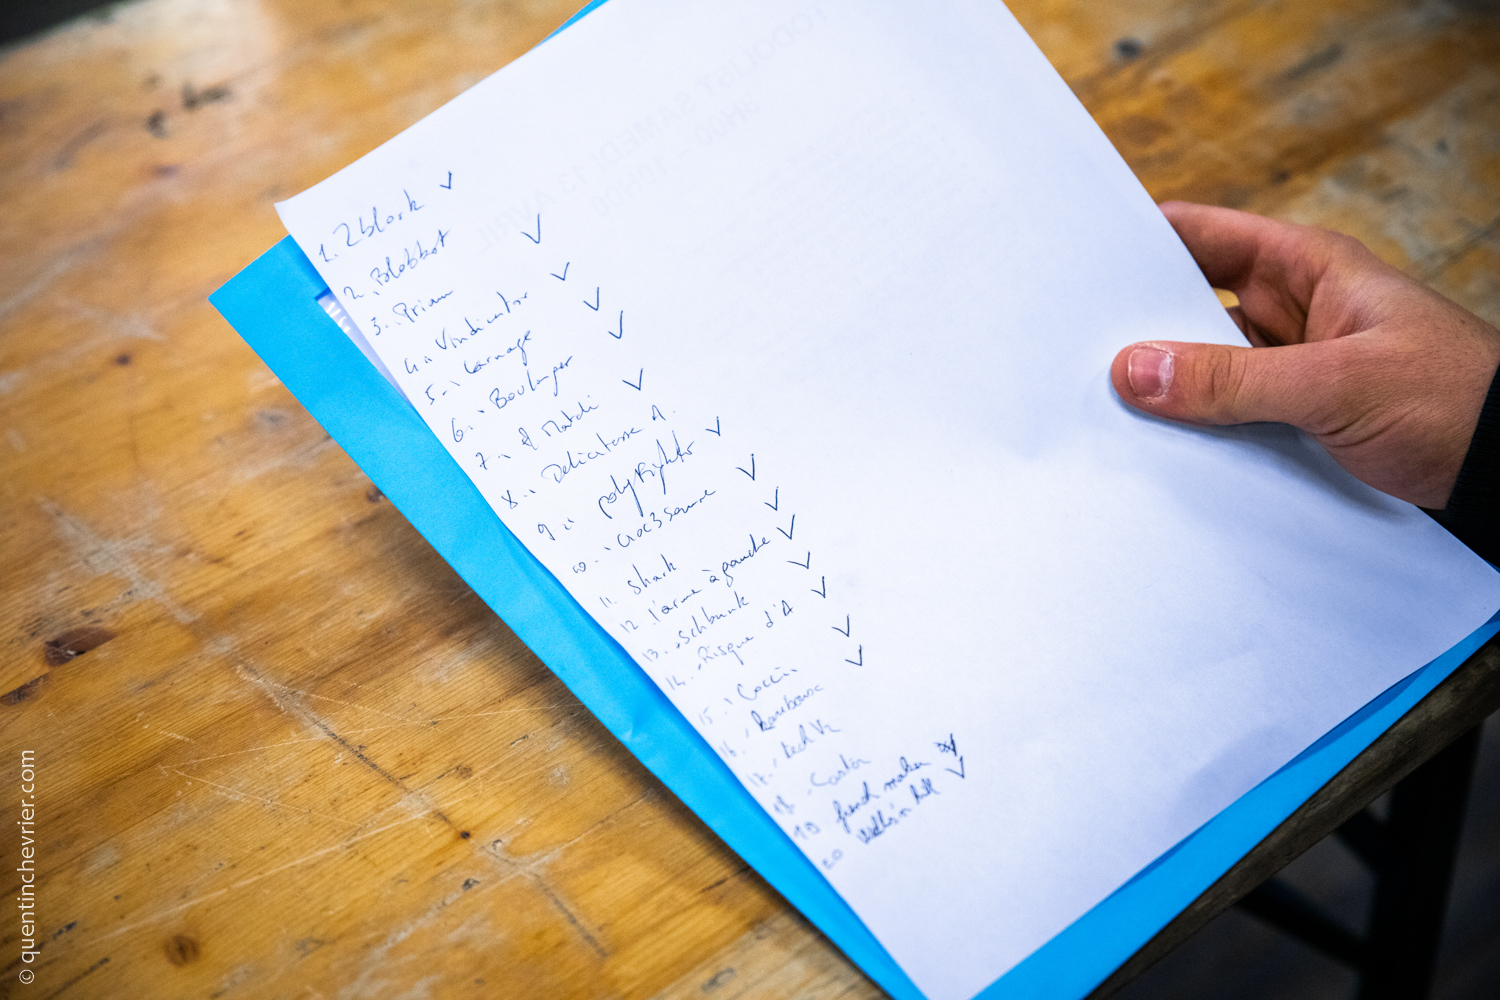 TODOLIST SAMEDI 13 AVRIL
9H00 - 10H00
1. 2block ✓
2. Blobbot ✓
3. Priam ✓
4. Vindicator ✓
5. Carnage ✓
6. Boulanger
7. El Matchi ✓
8. Delicatesse A.
9. polyFighter ✓
10. Croc3
11. Shark ✓
12. l'arme à gauche ✓
13. Schbunk ✓
14. Risque d'A ✓
15.
16.
17. tech V2
18. Castor
19 french maker
20 ✓
© quentinchevrier.com